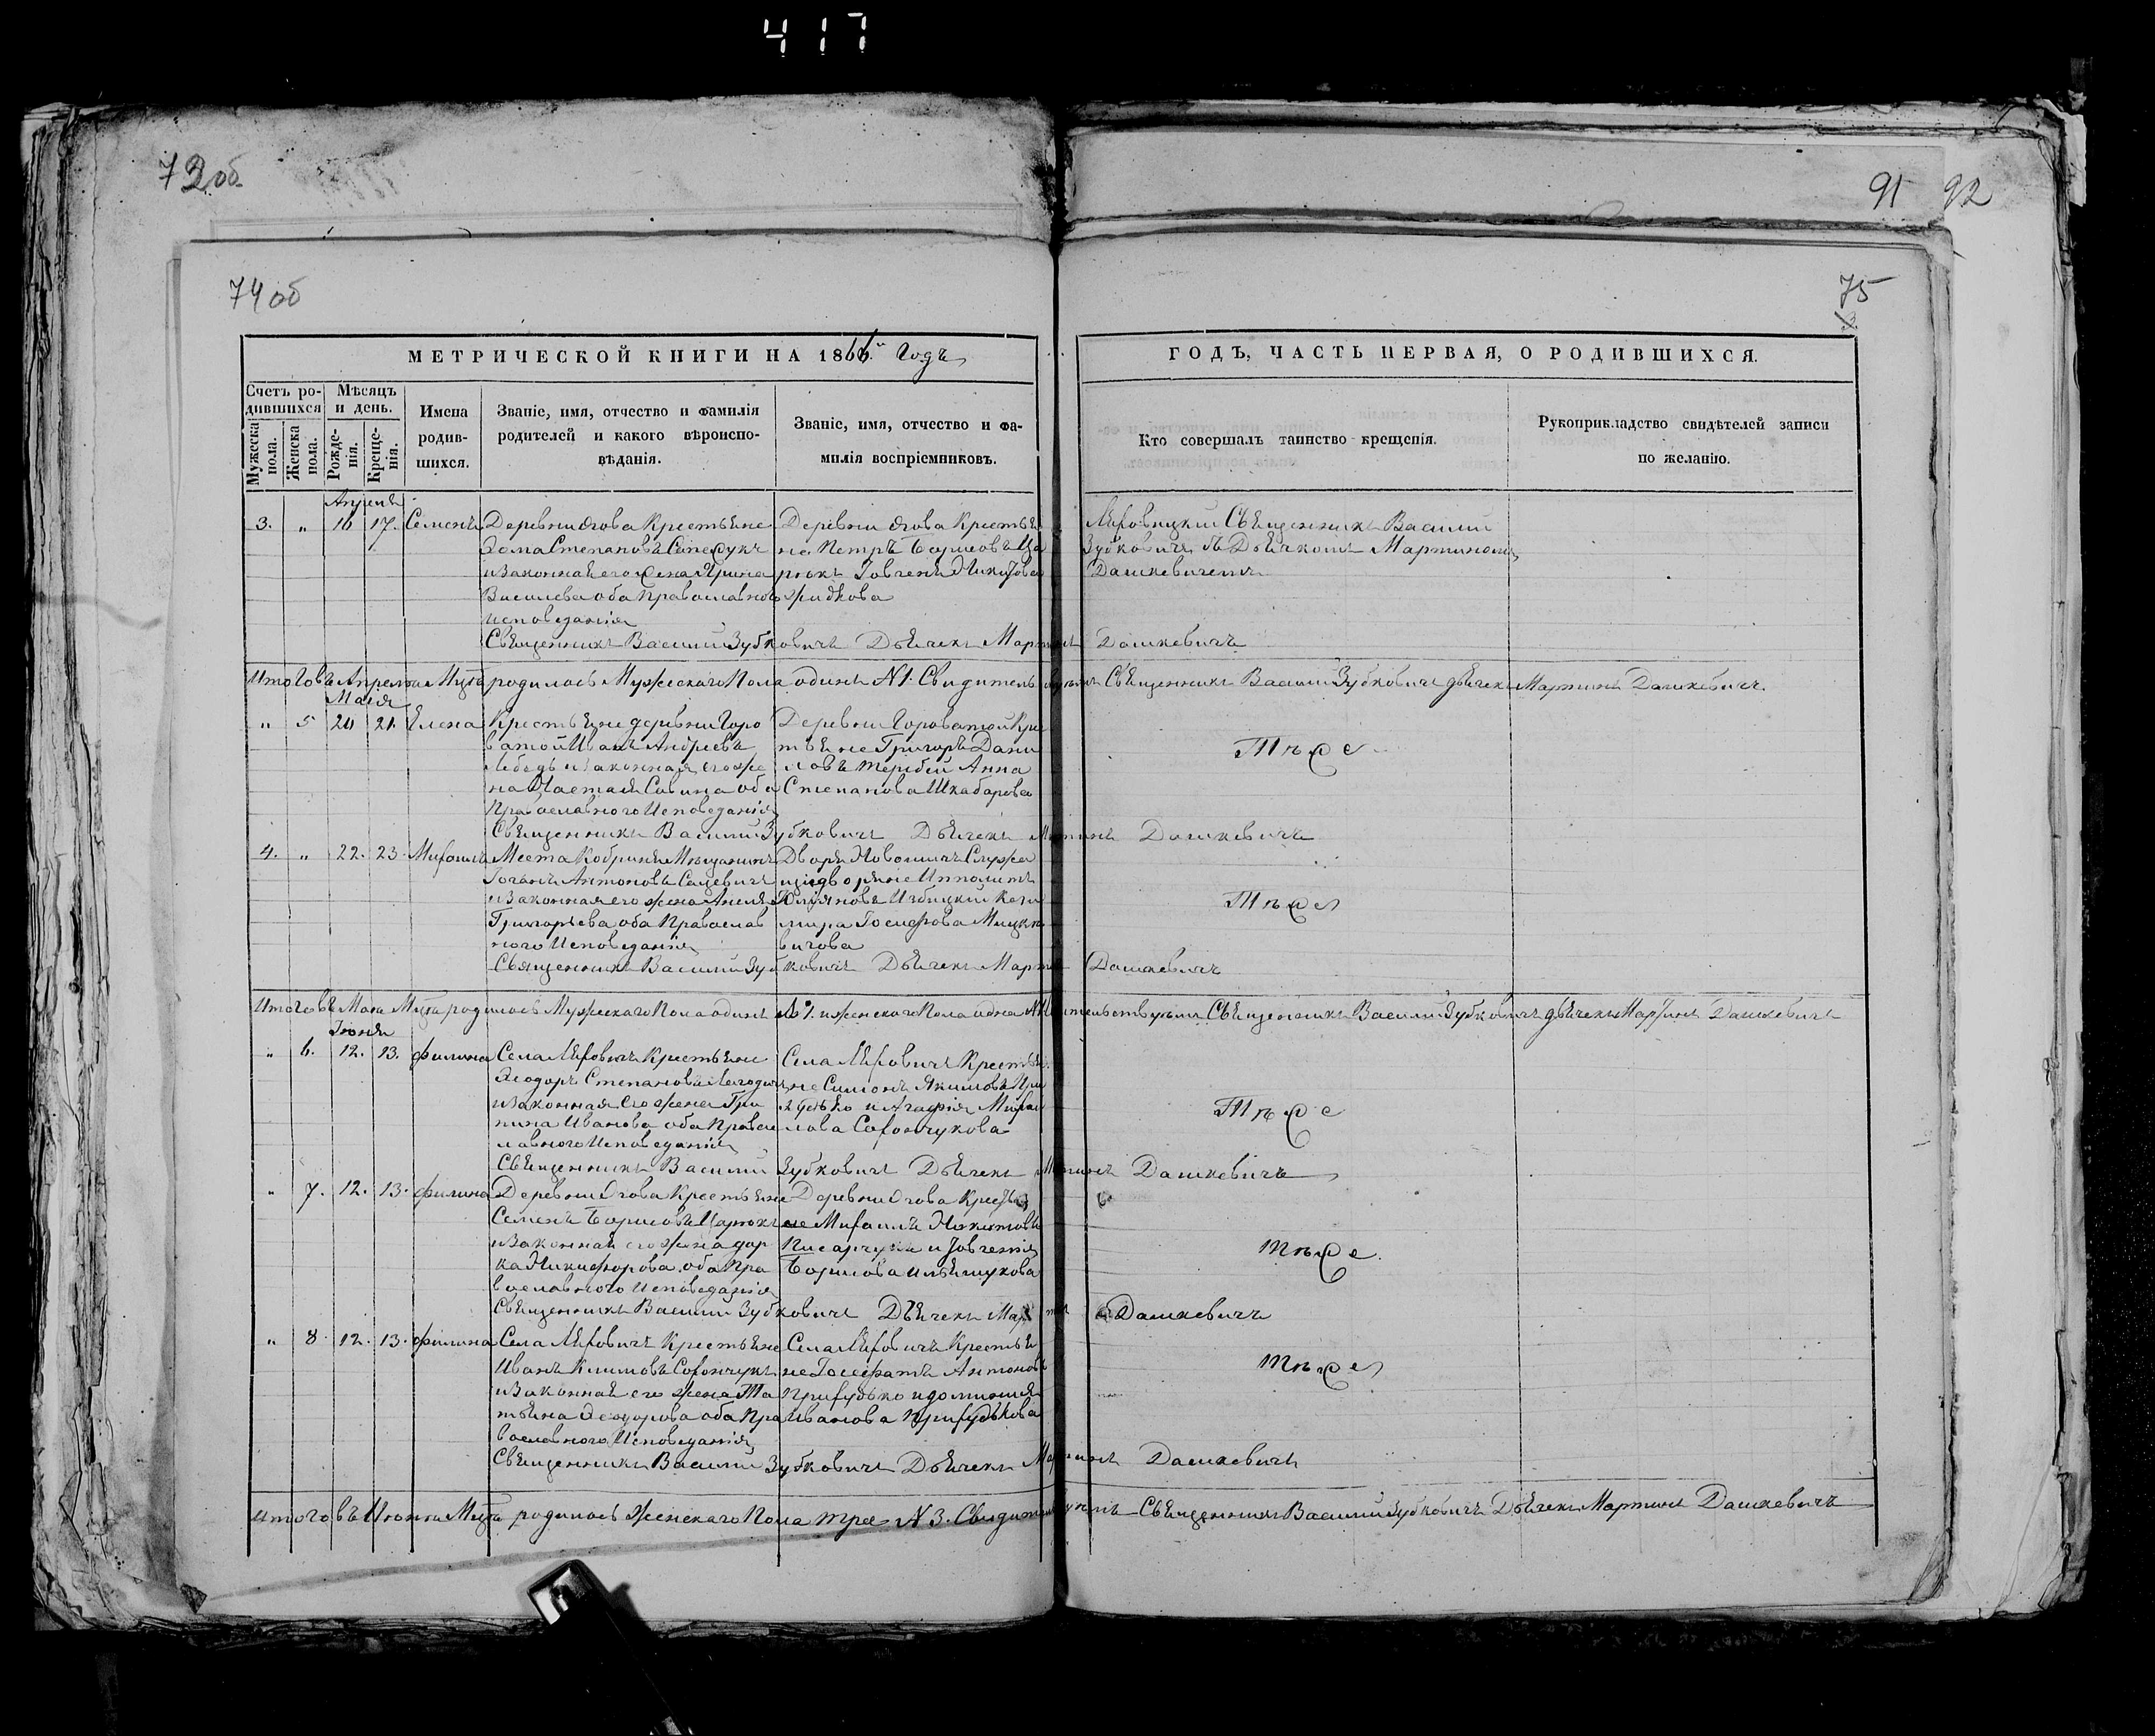 417
72об.
91 92
74об
75
МЕТРИЧЕСКОЙ КНИГИ НА 1866й Годъ
ГОДЪ, ЧАСТЬ ПЕРВАЯ, О РОДИВШИХСЯ.
Счетъ ро-
дившихся
Мужеска
пола.
Женска
пола.
Мѣсяцъ
и день.
Рожде-
нія.
Креще-
нія.
Имена
родив-
шихся.
Званіе, имя, отчество и фамилія
родителей и какого вѣроиспо-
вѣданія.
Званіе, имя, отчество и фа-
милія воспріемниковъ.
Кто совершалъ таинство крещенія.
Рукоприкладство свидѣтелей записи
по желанію.
Апреля
3. " 16 17. Семенъ
Деревни Огова Крестьяне
Степановъ
и Законная его жена Ирина
Василева оба Православного
исповеданія
Деревни Огова Крестья
не Петръ Борисовъ Ца
рюкъ
Жидкова
Священникъ Василий
Зубковичъ съ Дьячкомъ Мартиномъ
Дашкевичемъ
Священникъ Василий Зубковичъ Дьячекъ Мартинъ Дашкевичъ
Итого въ Апреля Мцѣ родилось Мужескаго Пола одинъ №1. Священникъ Василий Зубковичъ дьячекъ Мартинъ Дашкевичъ
Маія
" 5 20 21. Елена
Крестьяне деревни Горо
ватой Иванъ Андреевъ
Лебедь и законная его же
на Настася Савина оба
Православного Исповеданія
Деревни Гороватой Кре
тьяне Григоръ Дани
ловъ Теребей Анна
Степанова Шкабарова
Тъже
Священникъ Василий Зубковичъ Дьячекъ Мартинъ Дашкевичъ
4. " 22. 23. Михаилъ
Места Кобриня Мещанинъ
Іоганъ Антоновъ Сацевичъ
и Законная его жена Анеля
Григорьева оба Православ
ного Исповеданія
Двора
дворяне Ипполитъ
Юліяновъ Избицкий Кази
мира Іосифова Мицке
вичова
Тъже
Священникъ Василий Зубковичъ Дьячекъ Мартинъ Дашкевичъ
Итого въ Маіа Мцѣ родилось Мужскаго Пола одинъ №1. и женскаго Пола одна №1 Священникъ Василий Зубковичъ дьячекъ Мартинъ Дашкевичъ
Іюня
" 6. 12. 13. Филина
Села Ляховичъ Крестьяне
Ѳеодоръ Степановъ
и Законная его жена Гри
пина Иванова оба Правос
лавного Исповеданія
Села Ляховичъ Крестья
не Симонъ Якимовъ При
худько и Агафія Михаи
лова Сахончукова
Тъже
Священникъ Василий Зубковичъ Дьячекъ Мартинъ Дашкевичъ
" 7. 12. 13. Филина
Деревни Огова Крестьяне
Семенъ Борисовъ Царюкъ
и Законная его жена дар
ка Никифорова оба Пра
вославного Исповеданія
Деревни Огова Крестья
не Михаилъ Никитовъ
Писарчукъ и Іовгенія
Борисова Ильяшукова
Тъже
Священникъ Василий Зубковичъ Дьячекъ Мартинъ Дашкевичъ
" 8. 12. 13. Филина
Села Ляховичъ Крестьяне
Иванъ Климовъ Сахончукъ
и Законная его жена Та
тьяна Ѳеодорова оба Пра
вославного Исповеданія
Села Ляховичъ Крестья
не Іосафатъ Антоновъ
Прихудько и домникия
Иванова Прихудькова
Тъже
Священникъ Василий Зубковичъ Дьячекъ Мартинъ Дашкевичъ
Итого въ Июня Мцѣ родилось женскаго Пола три №3. Священникъ Василий Зубковичъ Дьячекъ Мартинъ Дашкевичъ